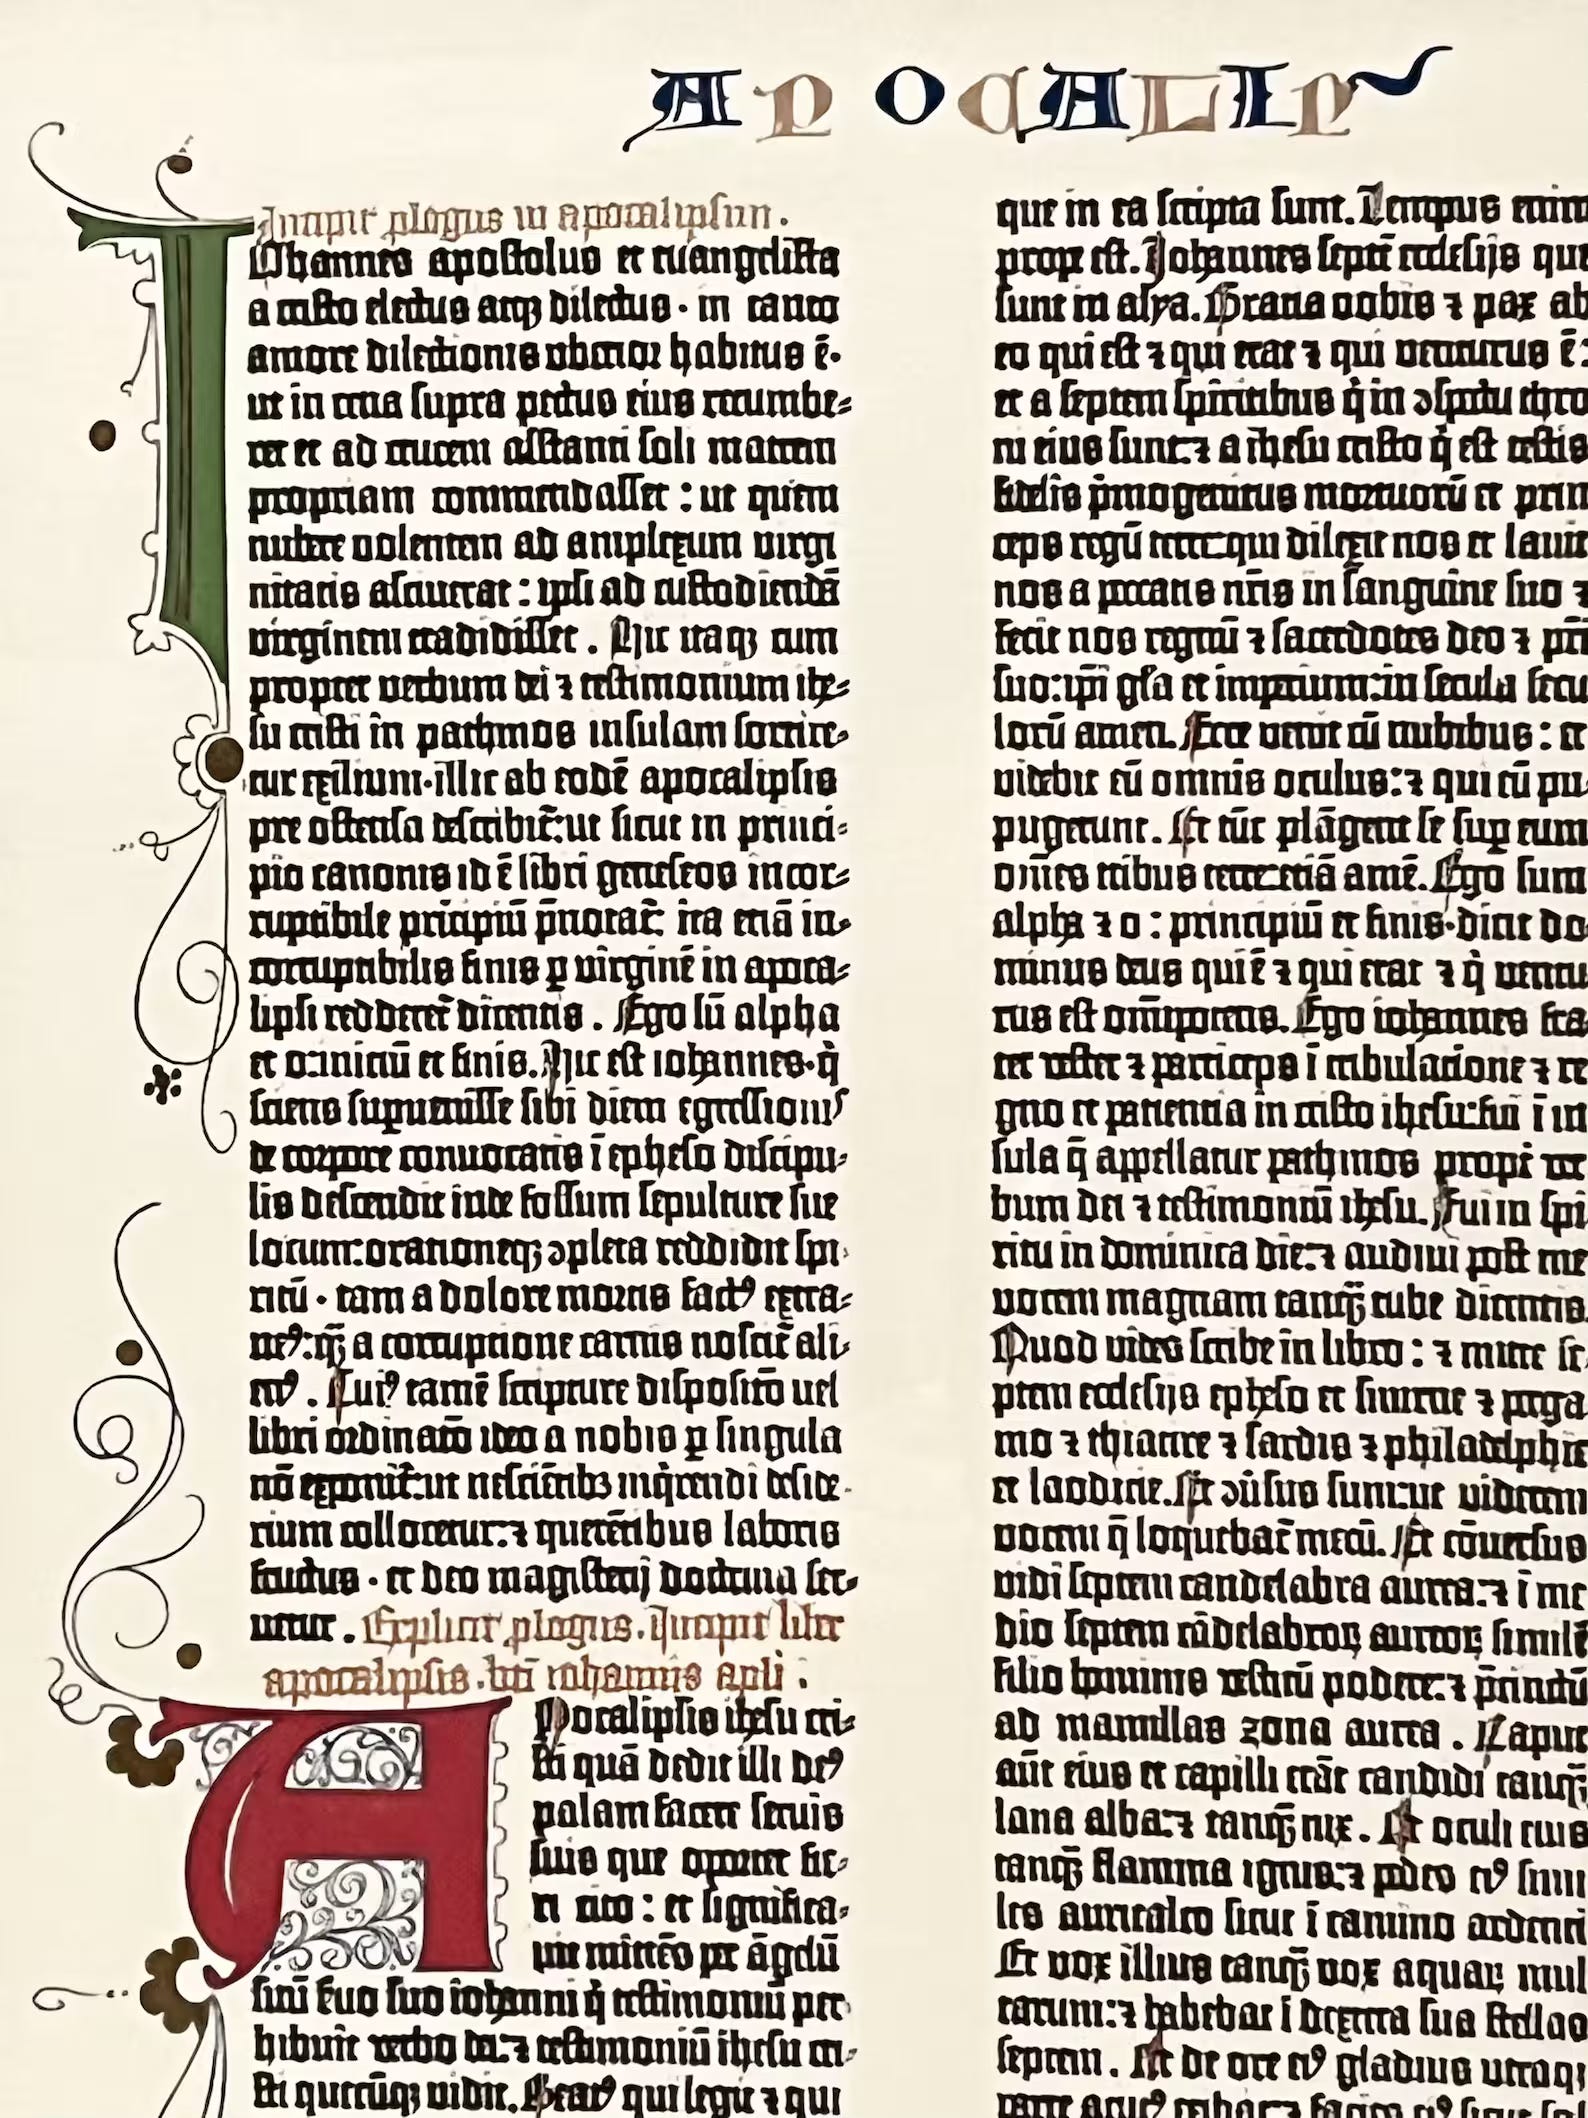 APOCALIP
Incipit plogus in apocalipsim.
Iohannes apostolus et euangelista
a cristo electus atq; dilectus · in tanto
amore dilectionis uberior habitus ē·
ut in cena supra pectus eius recumbe-
ret et ad crucem astanti soli matrem
propriam commendasset : ut quem
nubere volentem ad amplexum virgi
nitatis asciuerat : ipsi ad custodiendā
virginem tradidisset . Hic itaq; cum
propter verbum dei ⁊ testimonium ihe-
su cristi in pathmos insulam sortire-
tur exilium·illic ab eodē apocalipsis
pre ostensa describit̄:ut sicut in princi-
pio canonis id ē libri geneseos incor-
ruptibile pricipiū p̄notat̄: ita etiā in-
corruptibilis finis ꝑ virginē in apoca-
lipsi redderet̄ dicentis . Ego sū alpha
et o:iniciū et finis. Hic est iohannes·q̇
sciens supuenisse sibi diem egressionis
de corpore conuocatis ī epheso discipu-
lis descendit inde fossum sepulture sue
locum:orationeq; ɔpleta reddidit spi-
ritū · tam a dolore mortis fact⁹ extra-
ne⁹:q̄ a corruptione carnis noscit̄ ali-
en⁹ . Cui⁹ tamē scripture disposito vel
libri ordinatō ideo a nobis ꝑ singula
nō exponit̄:ut nesciētib; inq̇rendi deside-
rium collocetur:⁊ querētibus laboris
fructus · et deo magisterij doctrina ser-
uetur . Explicit plogus. Incipit liber
apocalipsis. bt̄i iohannis apli :
Apocalipsis ihesu cri-
sti quā dedit illi de⁹
palam facere seruis
suis que oportet fie-
ri cito : et significa-
uit mittēs per āgelū
suū seruo suo iohanni q̇ testimoniū per
hibuit verbo dei:⁊ testimoniū ihesu cri-
sti quecūq; vidit. Beat⁹ qui legit ⁊ qui
que in ea scripta sunt. Tempus enim
prope est. Johannes septē ecclesijs que
sunt in asya. Gratia vobis ⁊ pax ab
eo qui est ⁊ qui erat ⁊ qui venturus ē:
et a septem spiritibus q̇ in ɔspectu thro
ni eius sunt:⁊ a ihesu cristo q̇ est testis
fidelis p̄mogenitus mortuorū et prin
ceps regū terre:qui dilexit nos et lauit
nos a peccatis nr̄is in sanguine suo ⁊
fecit nos regnū ⁊ sacerdotes deo ⁊ pr̄i
suo:ip̄i gl̄a et imperium:in secula secu
lorū amen. Ecce venit cū nubibus : et
videbit eū omnis oculus:⁊ qui eū pu-
pugerunt. Et tūc plāgent se sup eum
om̄es tribus terre:etiā amē. Ego sum
alpha ⁊ o : principiū et finis·dicit do
minus deus qui ē ⁊ qui erat ⁊ q̇ ventu
rus est om̄ipotens. Ego iohannes fra
ter vester ⁊ particeps ī tribulatione ⁊ re
gno et patientia in cristo ihesu:fui ī in
sula q̄ appellatur pathmos propt̄ ver
bum dei ⁊ testimoniū ihesu. Fui in spi
ritu in dominica die:⁊ audiui post me
vocem magnam tanq̄ tube dicentis.
Quod vides scribe in libro : ⁊ mitte se-
ptem ecclesijs epheso et smirne ⁊ perga
mo ⁊ thiatire ⁊ sardis ⁊ philadelphie
et laodicie. Et ɔūsus sum:ut viderem
vocem q̄ loquebat̄ mecū. Et cōuersus
vidi septem candelabra aurea:⁊ ī me
dio septem cādelabrorꝝ aureorꝝ similē
filio hominis vestitū podere:⁊ p̄cinctū
ad mamillas zona aurea . Caput
aūt eius et capilli erāt candidi tanq̄
lana alba:⁊ tanq̄ nix . Et oculi eius
tanq̄ flamma ignis:⁊ pedes ei⁹ simi
les auricalco sicut ī camino ardenti
Et vox illius tanq̄ vox aquarꝝ mul
tarum:⁊ habebat ī dextera sua stellas
septem . Et de ore ei⁹ gladius utraq;
parte acut⁹ exibat:⁊ facies ei⁹ sicut sol